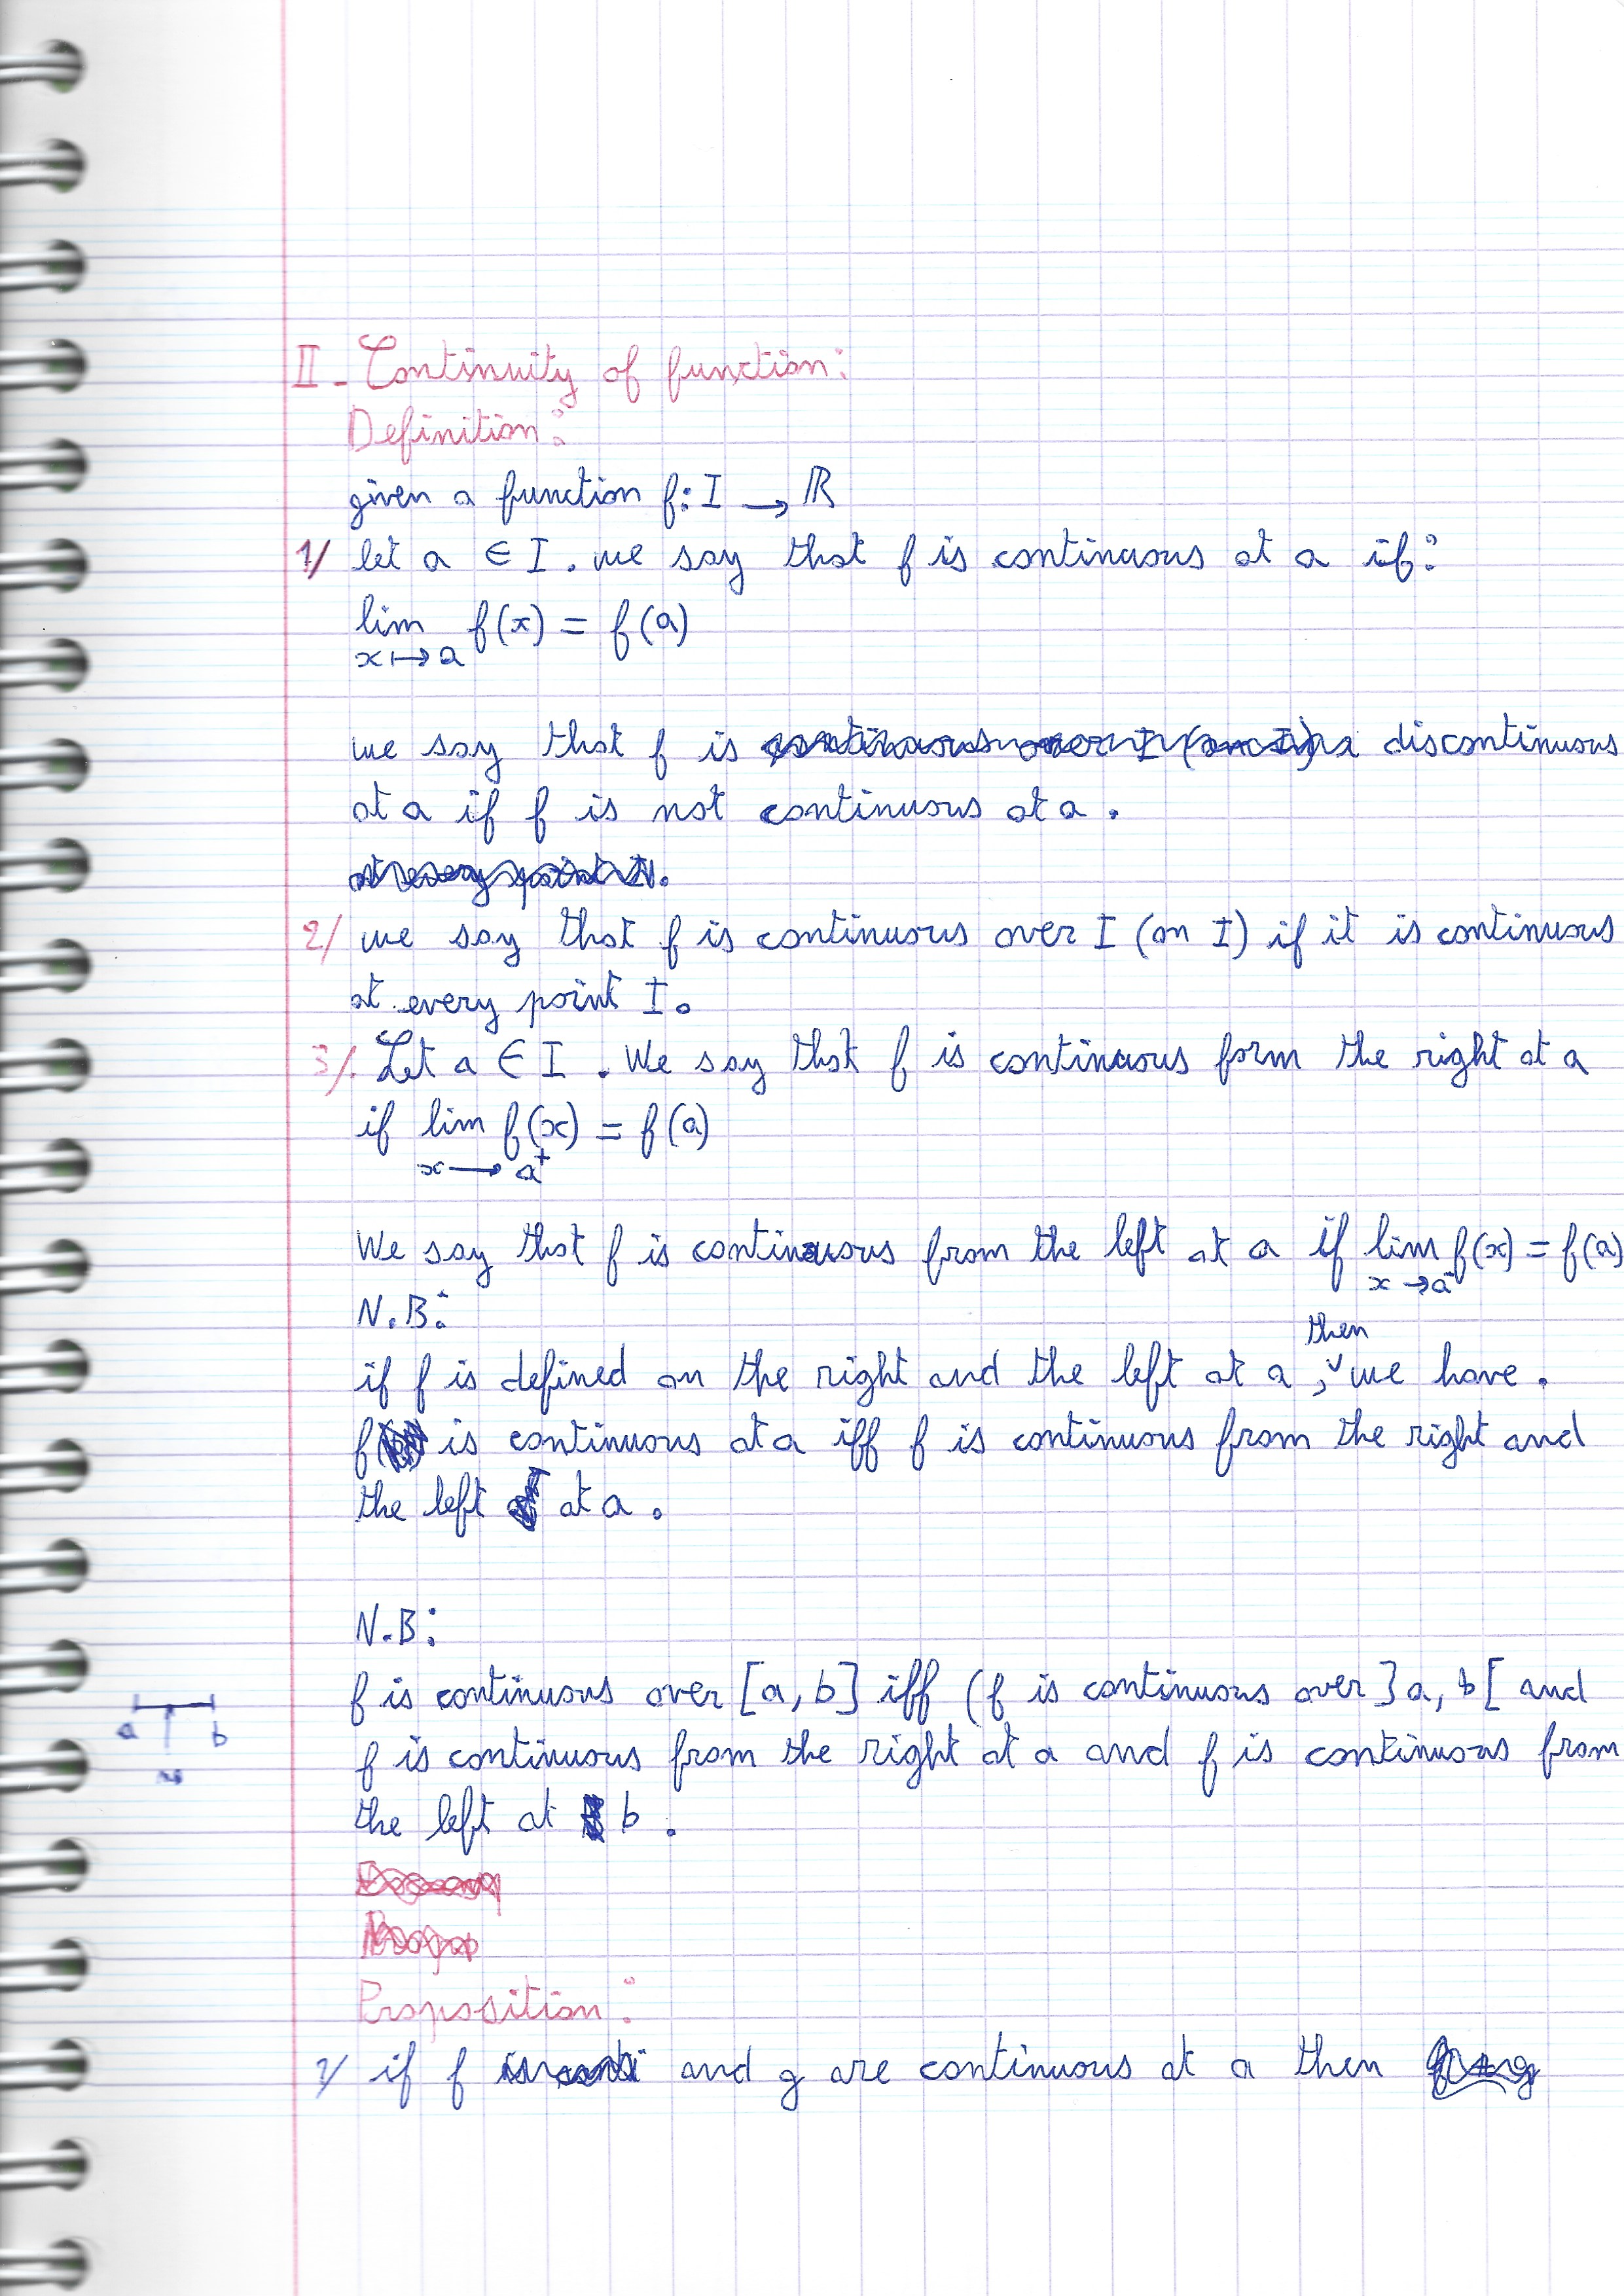 II - Continuity of function:
Definition:
given a function f: I → ℝ
1/ let a ∈ I. we say that f is continuous at a if:
lim f(x) = f(a)
x ↦ a
we say that f is continuous over I (on I) discontinuous
at a if f is not continuous at a.
at every point I.
2/ we say that f is continuous over I (on I) if it is continuous
at every point I.
3/. Let a ∈ I. We say that f is continuous form the right at a
if lim f(x) = f(a)
x → a⁺
We say that f is continuous from the left at a if lim f(x) = f(a)
x → a⁻
N.B:
then
if f is defined on the right and the left at a, we have.
f is continuous at a iff f is continuous from the right and
the left at a.
N.B:
f is continuous over [a, b] iff (f is continuous over ]a, b[ and
a b
f is continuous from the right at a and f is continuous from
the left at b.
Proposition:
1/ if f is conti and g are continuous at a then f+g